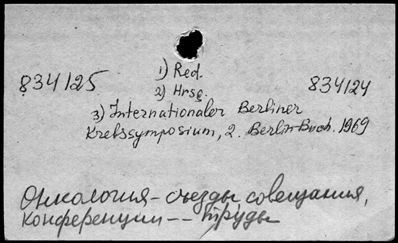 1) Red.
834125
2) Hrsg.
834124
3) Internationaler Berliner
Krebssymposium, 2. Berlin-Buch. 1969
Онкология - съезды, совещания,
конференции -- труды